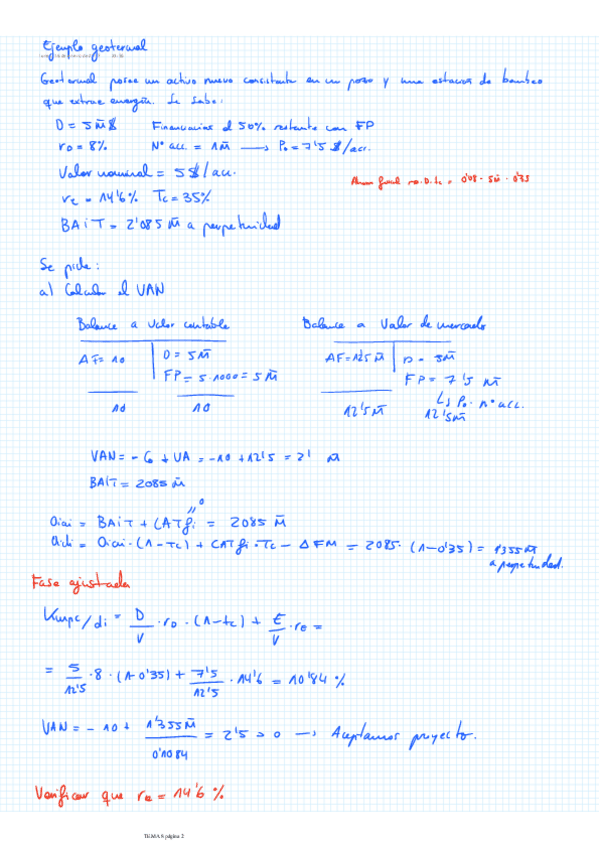 Ejemplo geotermal
Geotermal posee un activo nuevo consistente en un pozo y una estación de bombeo
que extrae energía. Se sabe:
D = 5 M̄ $ Financiación el 50% restante con FP
r_D = 8% Nº acc. = 1 M̄ → P₀ = 7'5 $/acc.
Valor nominal = 5 $/acc. Ahorro fiscal r_D.D.tc = 0'08 · 5M̄ · 0'35
r_e = 14'6% Tc = 35%
BAiT = 2'085 M̄ a perpetuidad
Se pide:
a) Calcular el VAN
Balance a valor contable Balance a Valor de mercado
AF = 10 D = 5 M̄ AF = 12'5 M̄ D = 5M̄
FP = 5 · 1000 = 5 M̄ FP = 7'5 M̄
↳ P₀ · nº acc.
10 10 12'5 M̄ 12'5 M̄
VAN = - C₀ + VA = -10 + 12'5 = 2' M̄
BAiT = 2085 M̄
0
BAiT + CATfi = 2085 M̄
(1-Tc) + CATfi · Tc - ΔFM = 2085 · (1-0'35) = 1355 M̄
a perpetuidad.
Fase ajustada
Kwpc/di = D/V · r_D · (1-tc) + E/V · r_e =
= 5/12'5 · 8 · (1-0'35) + 7'5/12'5 · 14'6 = 10'84 %
VAN = - 10 + 1'355 M̄/0'1084 = 2'5 > 0 → Aceptamos proyecto.
Verificar que r_e = 14'6 %
TEMA 8 página 2